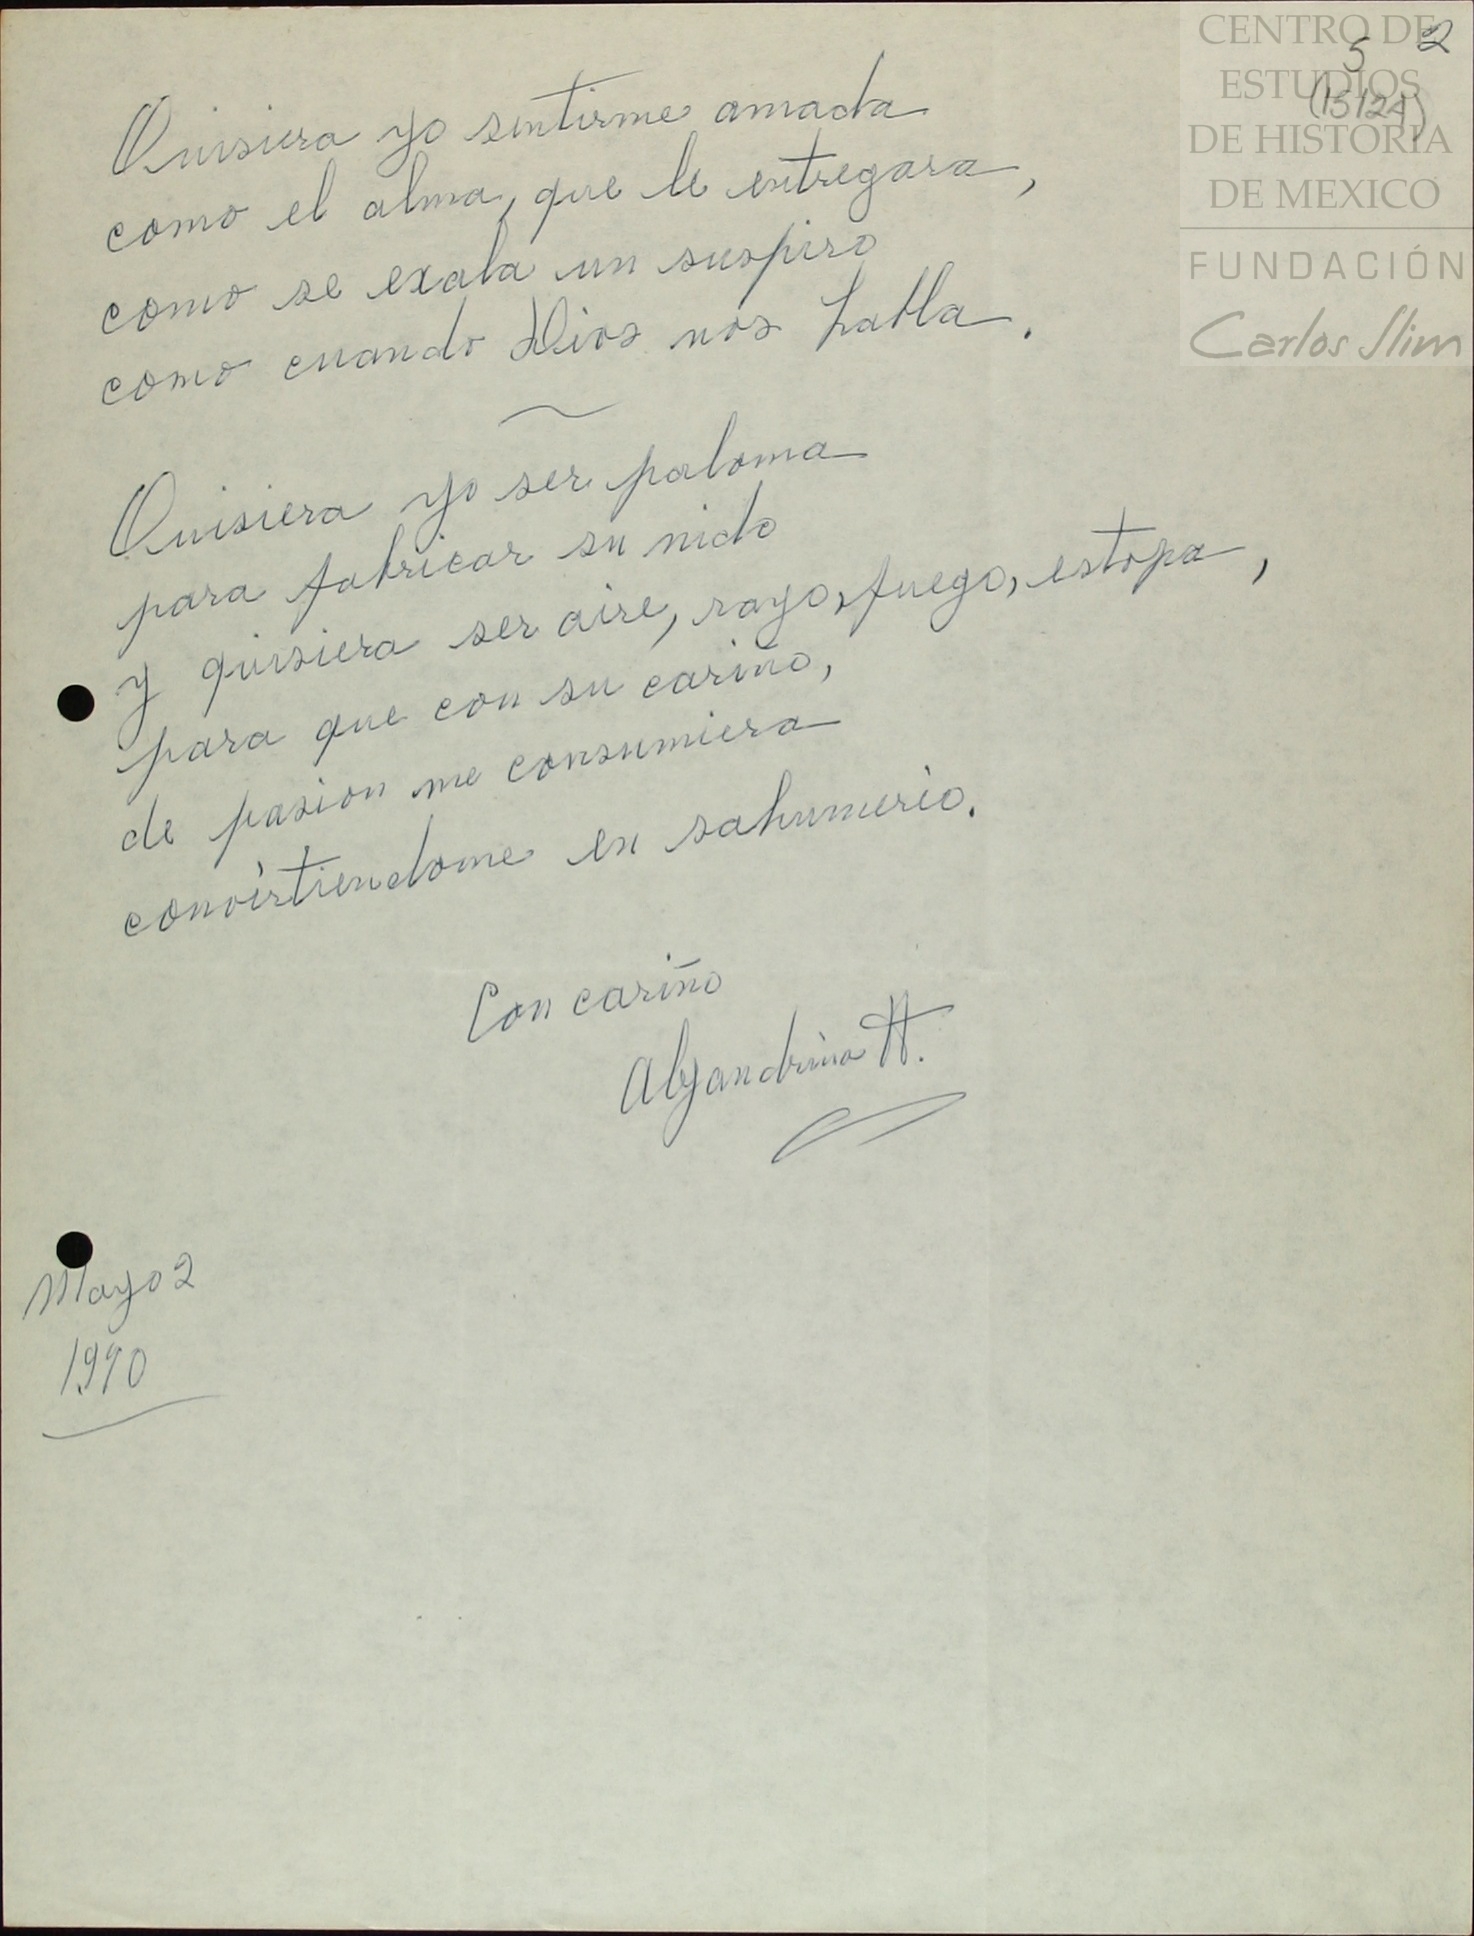 CENTRO DE
ESTUDIOS
DE HISTORIA
DE MEXICO
FUNDACIÓN
Carlos Slim
2
5
(15124)
Quisiera yo sentirme amada
como el alma, que le entregara,
como se exala un suspiro
como cuando Dios nos habla.
Quisiera yo ser paloma
para fabricar su nido
y quisiera ser aire, rayo, fuego, estopa,
para que con su cariño,
de pasion me consumiera
convirtiendome en sahumerio.
Con cariño
Alejandrina H.
Mayo 2
1990